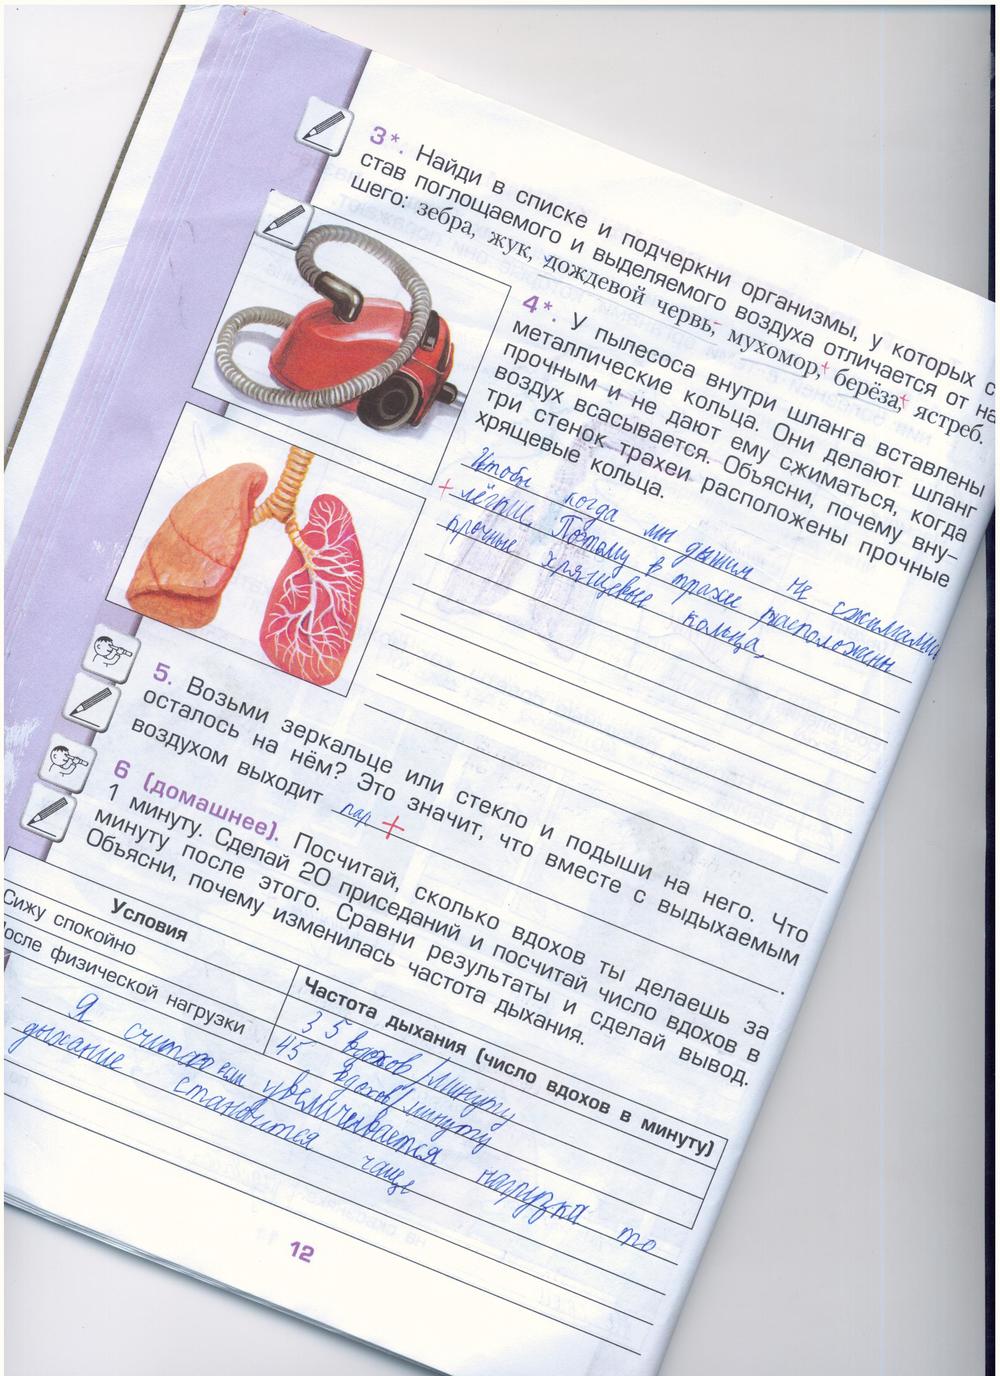 3*. Найди в списке и подчеркни организмы, у которых со
став поглощаемого и выделяемого воздуха отличается от на
шего: зебра, жук, дождевой червь, мухомор, берёза, ястреб.
4*. У пылесоса внутри шланга вставлены
металлические кольца. Они делают шланг
прочным и не дают ему сжиматься, когда
воздух всасывается. Объясни, почему вну-
три стенок трахеи расположены прочные
хрящевые кольца.
Чтобы когда мы дышим не сжимались
+ лёгкие. Поэтому в трахе расположены
прочные хрящевые кольца,
5. Возьми зеркальце или стекло и подыши на него. Что
осталось на нём? Это значит, что вместе с выдыхаемым
воздухом выходит пар + .
6 (домашнее). Посчитай, сколько вдохов ты делаешь за
1 минуту. Сделай 20 приседаний и посчитай число вдохов в
минуту после этого. Сравни результаты и сделай вывод.
Объясни, почему изменилась частота дыхания.
Условия Частота дыхания (число вдохов в минуту)
Сижу спокойно 35 вдохов/минуту
осле физической нагрузки 45 вдохов/минуту
Я считаю если увеличивается нагрузка то
дыхание становится чаще
12